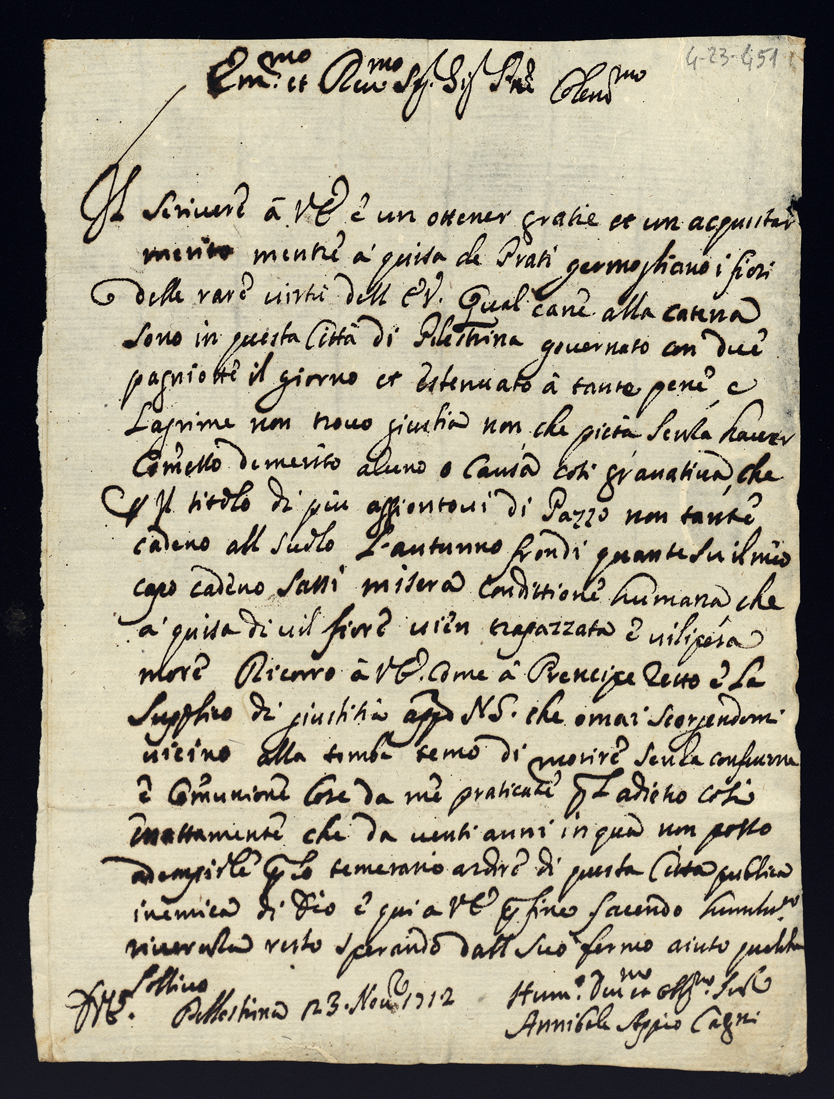 4-23-451
Em.mo et Rev.mo Sig. Sig. Pne Colend.mo
Il scrivere à V.E. è un ottener gratie et un acquistar
merito mentre a guisa de Prati germogliano i fiori
delle rare virtù dell E.V. Qual cane alla catena
sono in questa Città di Pelestrina governato con due
pagniotte il giorno et estenuato à tante pene, e
Lagrime non trovo giustitia non che pietà senza haver
Com̃esso demerito alcuno o causa così gravativa, che
Il titolo di più affrontovi di Pazzo non tante
cadeno all suolo L'autunno frondi quante su il mio
capo cadeno sassi misera condittione humana che
a guisa di vil fiore vien trapazzata e vilipesa
more Ricorro à V.E. come à Prencipe retto e La
Supplico di giustitia app.o N.S. che omai scorgendomi
vicino alla tomba temo di morire senza confessione
e Com̃unione Cose da me praticate ꝑ L adietro così
esattamente che da venti anni in quà non posso
adempirle ꝑ lo temerario ardire di questa Città publica
inemica di Dio e qui a V.E. ꝑ fine facendo humiliss.a
riverenza resto sperando dall suo fermo aiuto qualche
sollievo
D.V.E. Pellestrina 23. Nov.e 1712
Hum.o Dev.mo et obl.mo Ser.e
Annibale Appio Cagni